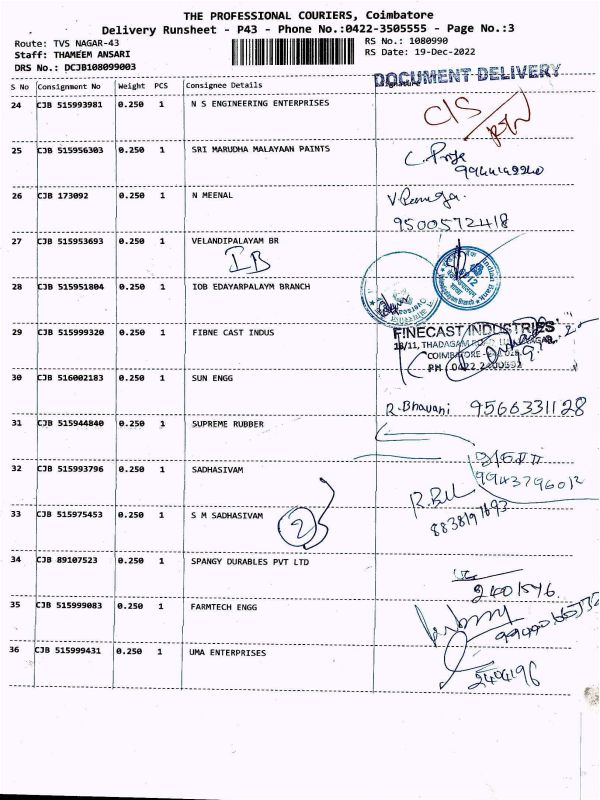 THE PROFESSIONAL COURIERS, Coimbatore
Delivery Runsheet - P43 - Phone No.:0422-3505555 - Page No.:3
Route: TVS NAGAR-43 RS No.: 1080990
Staff: THAMEEM ANSARI RS Date: 19-Dec-2022
DRS No.: DCJB108099003
DOCUMENT DELIVERY
S No Consignment No Weight PCS Consignee Details Signature
24 CJB 515993981 0.250 1 N S ENGINEERING ENTERPRISES
C/S
25 CJB 515956303 0.250 1 SRI MARUDHA MALAYAAN PAINTS
C. Priya
26 CJB 173092 0.250 1 N MEENAL
9500572418
27 CJB 515953693 0.250 1 VELANDIPALAYAM BR
IB
Indian Bank
28 CJB 515951804 0.250 1 IOB EDAYARPALAYM BRANCH
29 CJB 515999320 0.250 1 FIBNE CAST INDUS
FINECAST INDUSTRIES
18/11, THADAGAM
COIMBATORE
PH : 0422 2400592
30 CJB 516002183 0.250 1 SUN ENGG
R. Bhavani 9566331128
31 CJB 515944840 0.250 1 SUPREME RUBBER
32 CJB 515993796 0.250 1 SADHASIVAM
9943796012
33 CJB 515975453 0.250 1 S M SADHASIVAM
2
8838197693
34 CJB 89107523 0.250 1 SPANGY DURABLES PVT LTD
2401546
35 CJB 515999083 0.250 1 FARMTECH ENGG
36 CJB 515999431 0.250 1 UMA ENTERPRISES
2404196